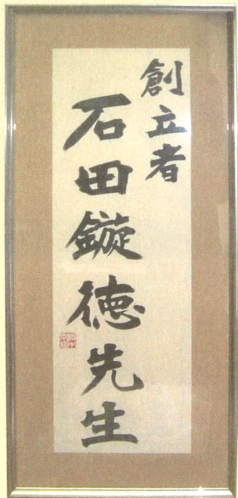 創立者
石田鏇徳先生